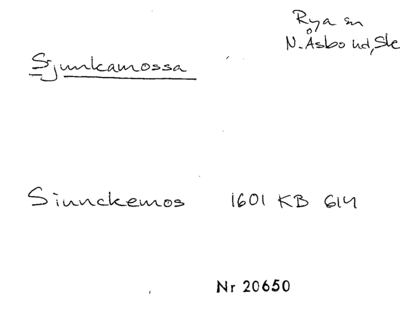 Rya sn
N. Åsbo hd, Sk
Sjunkamossa
Siunckemos 1601 KB 614
Nr 20650